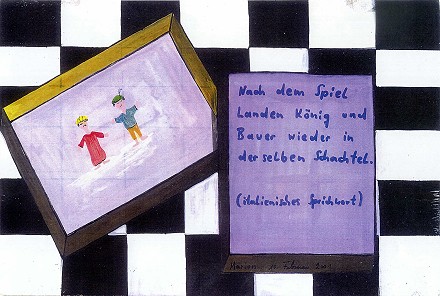 Nach dem Spiel
Landen König und
Bauer wieder in
derselben Schachtel.
(italienisches Sprichwort)